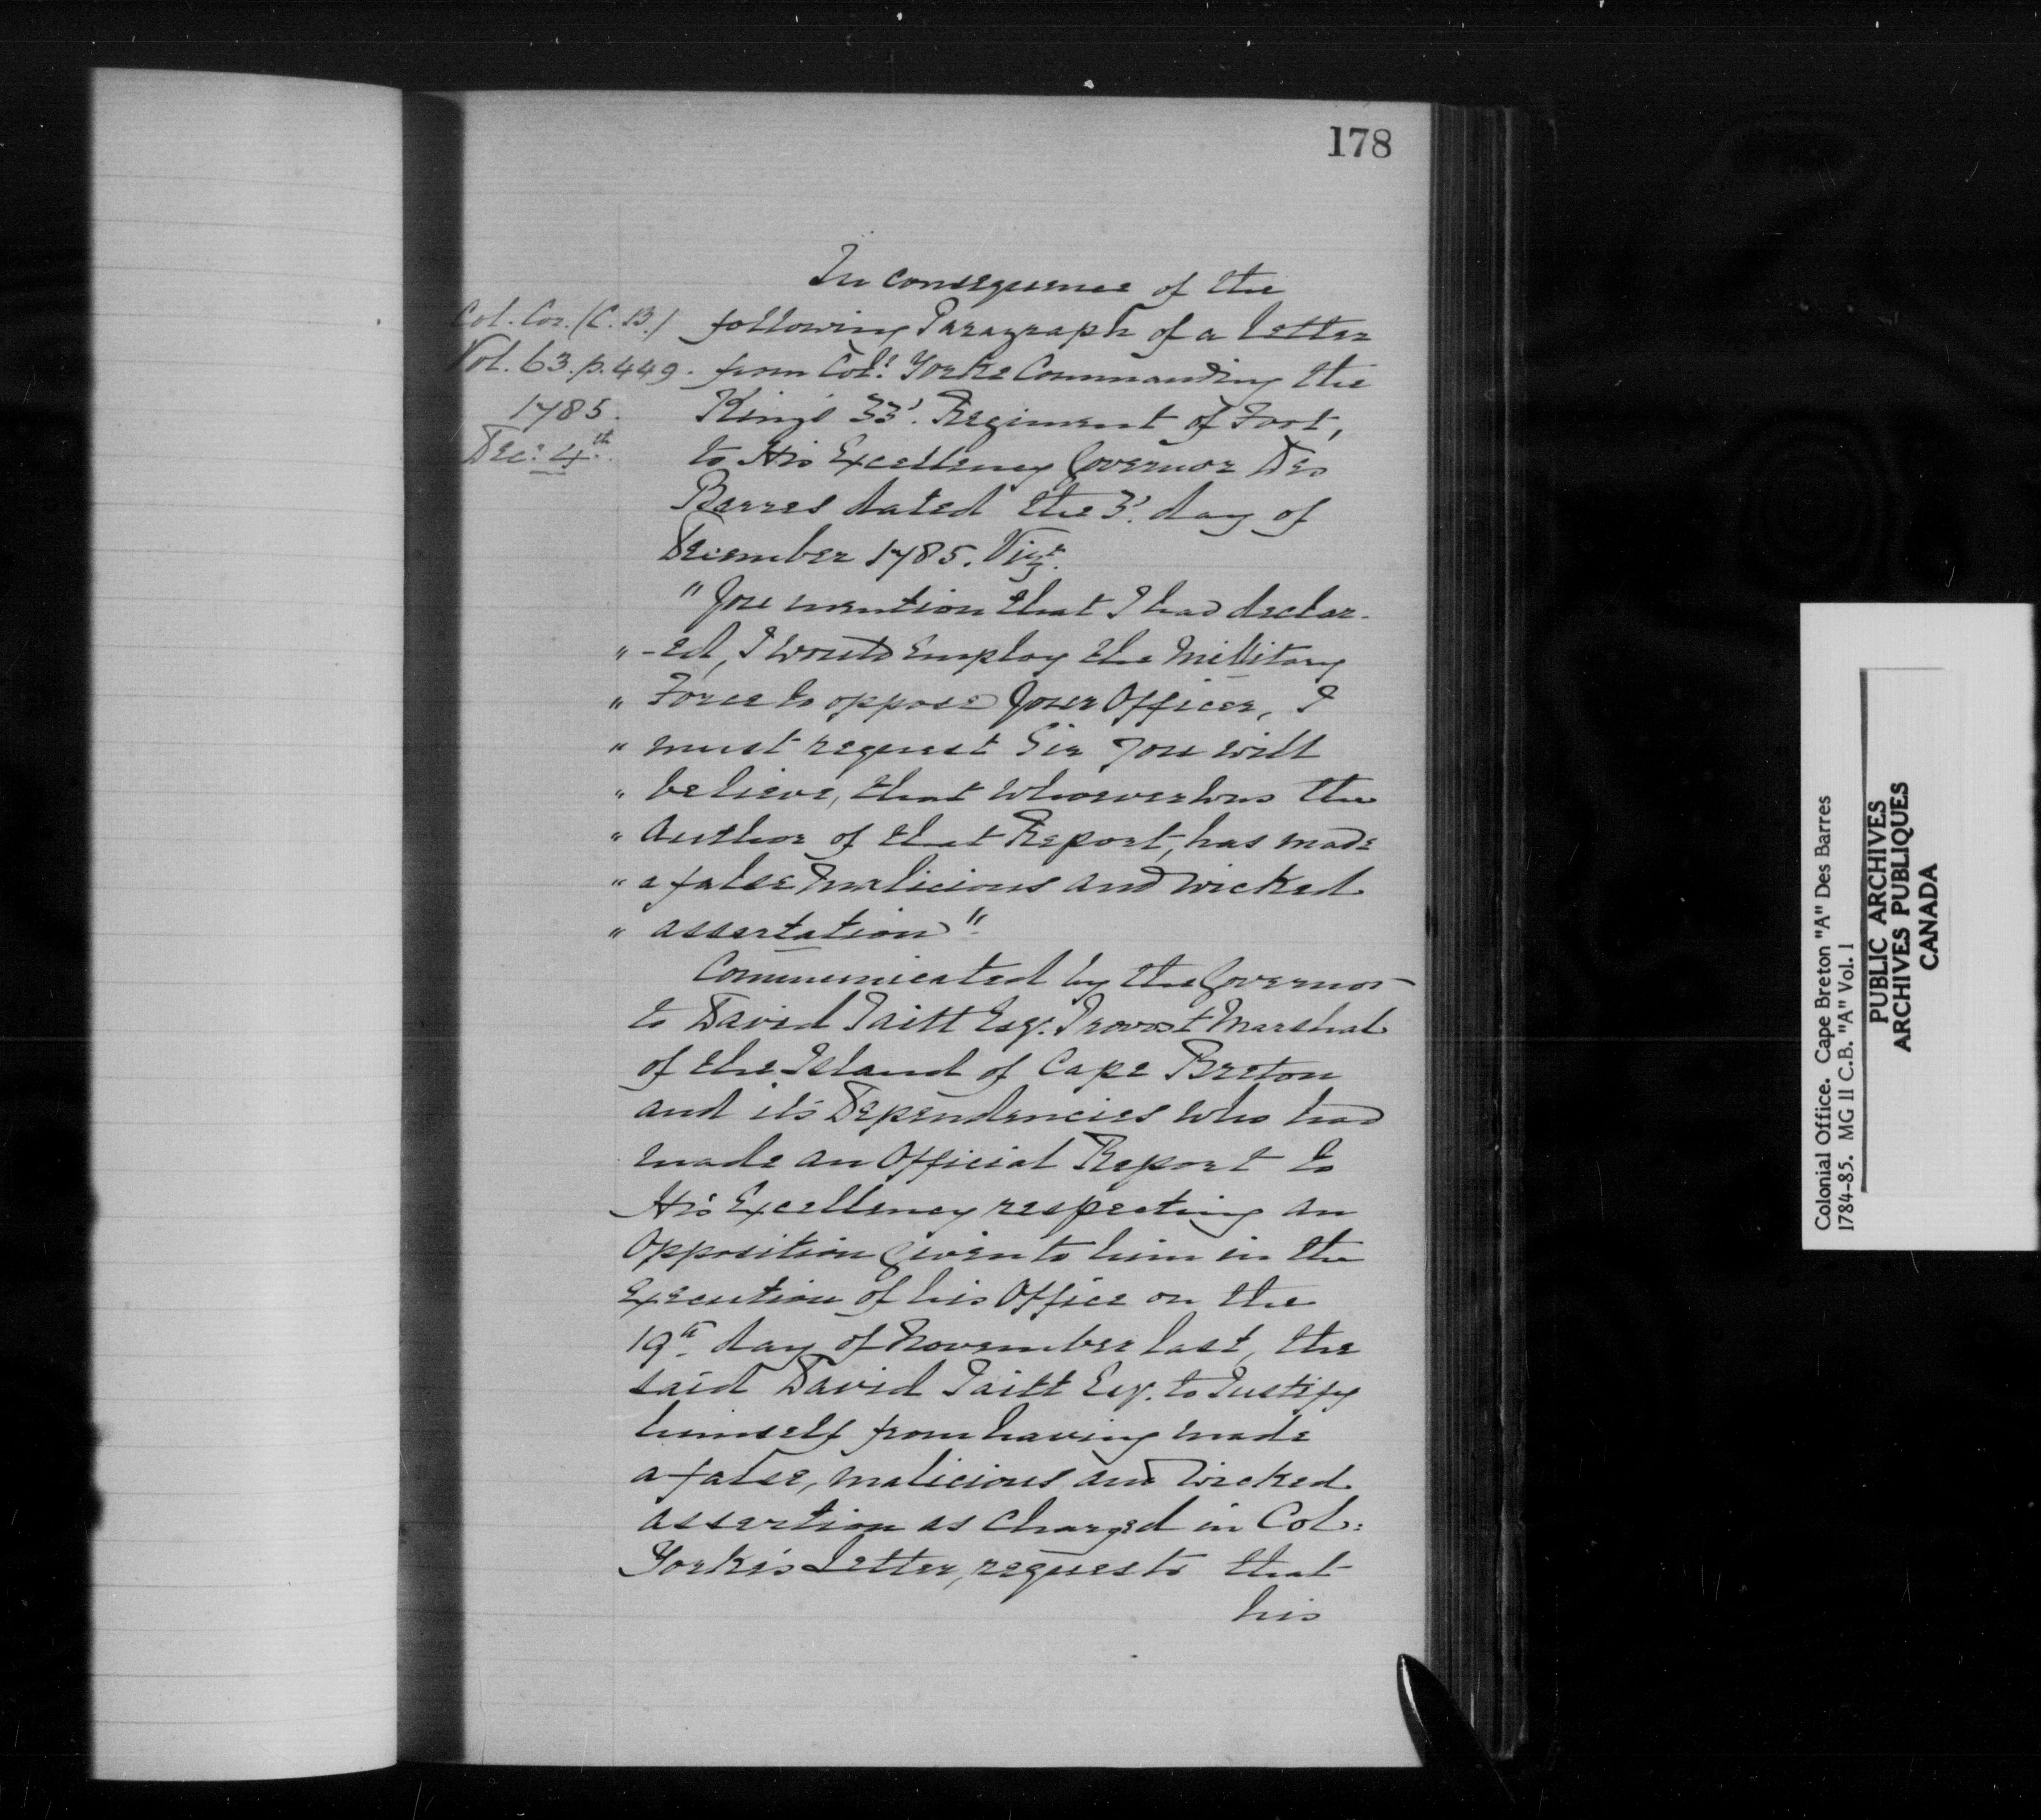 178
Col. Cor. (C.B.)
Vol. 63. p. 449.
1785.
Dec: 4th.
In consequence of the
following Paragraph of a Letter
from Col: Yorke Commanding the
King's 33'. Regiment of Foot,
to His Excellency Governor Des
Barres dated the 3'. day of
December 1785. Viz:
"You mention that I had declar-
" -ed, I would Employ the Military
" Force to oppose Your Officer, I
" must request Sir You will
" believe, that whoever was the
" Author of that Report, has made
" a false Malicious and wicked
" assertation".
Communicated by the Governor
to David Taitt Esq. Provost Marshal
of the Island of Cape Breton
and its Dependencies who had
made an Official Report to
His Excellency respecting an
Opposition given to him in the
Execution of his Office on the
19th. day of November last, the
said David Taitt Esq. to Justify
himself from having made
a false, malicious and wicked
assertion as charged in Col:
York's Letter, requests that
his
Colonial Office. Cape Breton "A" Des Barres
1784-85. MG 11 C.B. "A" Vol. 1
PUBLIC ARCHIVES
ARCHIVES PUBLIQUES
CANADA